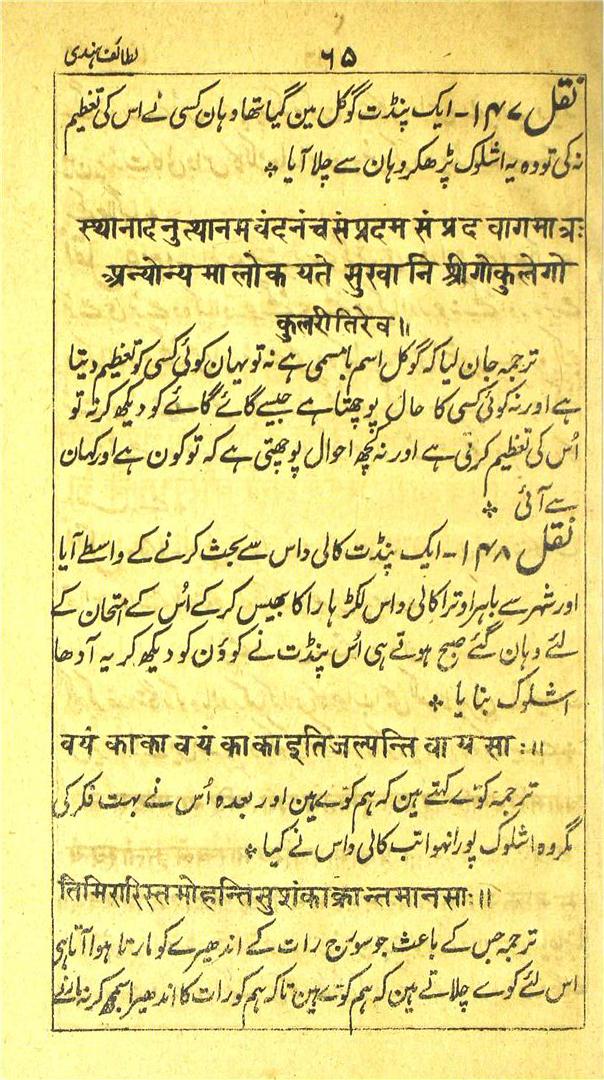 ۶۵ لطائف ہندی
نقل ۱۴۷ - ایک پنڈت گوکل مین گیا تھا وہان کسی نے اس کی تعظیم
نہ کی تو وہ یہ اشلوک پڑھکر وہان سے چلا آیا ❖
स्थानादनुत्थानमवंदनंचसंप्रदम सं प्रद वागमात्रः
अन्योन्य मा लोक यते सुखा नि श्रीगोकुलेगो
कुलरीतिरेव॥
ترجمہ جان لیا کہ گوکل اسم بامسمی ہے نہ تو یہان کوئی کسی کو تعظیم دیتا
ہے اور نہ کوئی کسی کا حال پوچھتا ہے جیسے گائے گائے کو دیکھ کر نہ تو
اُس کی تعظیم کرتی ہے اور نہ کچھ احوال پوچھتی ہے کہ تو کون ہے اور کہان
سے آئی ❖
نقل ۱۴۸ - ایک پنڈت کالی داس سے بحث کرنے کے واسطے آیا
اور شہر سے باہر اوترا کالی داس لکڑہارا کا بھیس کرکے اُس کے امتحان کے
لئے وہان گئے صبح ہوتے ہی اُس پنڈت نے کوؤن کو دیکھ کر یہ آدھا
اشلوک بنایا ❖
वयं काका वयं काका इतिजल्पन्ति वा य सा :॥
ترجمہ کوّے کہتے ہین کہ ہم کوّے ہین اور بعدہ اُس نے بہت فکر کی
مگر وہ اشلوک پورا نہوا تب کالی داس نے کہا ❖
तिमिरारिस्तमोहन्तिसुशंकाक्रान्तमानसाः॥
ترجمہ جس کے باعث جو سورج رات کے اندھیرے کو مارتا ہوا آتا ہی
اس لئے کوے چلاتے ہین کہ ہم کوّے ہین تاکہ ہم کو رات کا اندھیرا سمجھ کر نہ مارنے